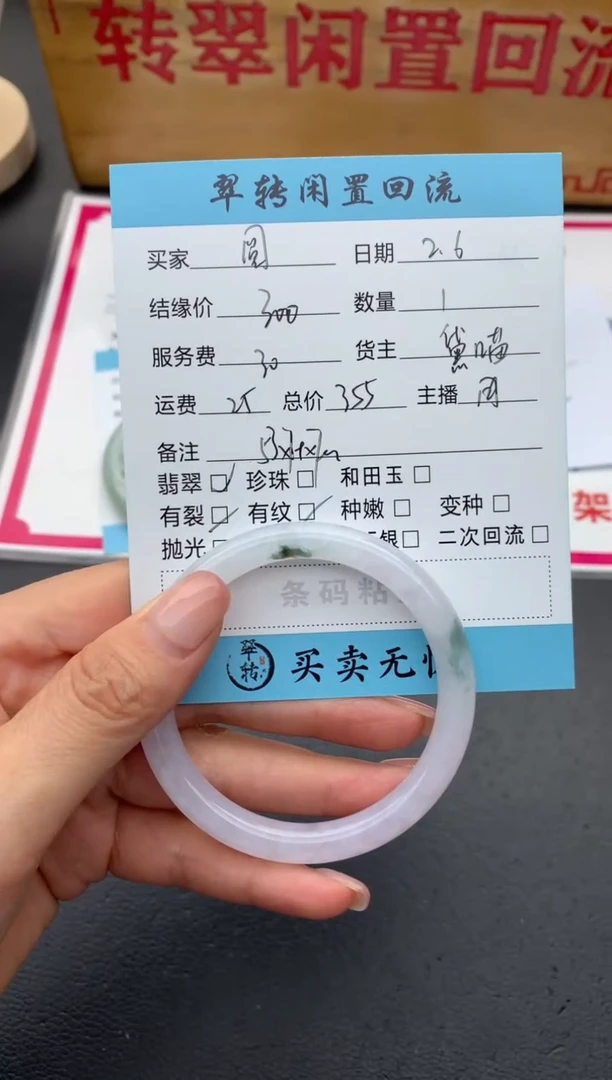 转翠闲置回流
翠转闲置回流
买家 圆 日期 2.6
结缘价 300 数量 1
服务费 30 货主 黛喵
运费 25 总价 355 主播
备注
翡翠 珍珠 和田玉
有裂 有纹 种嫩 变种
抛光 银 二次回流
条码粘
翠转 买卖无
架